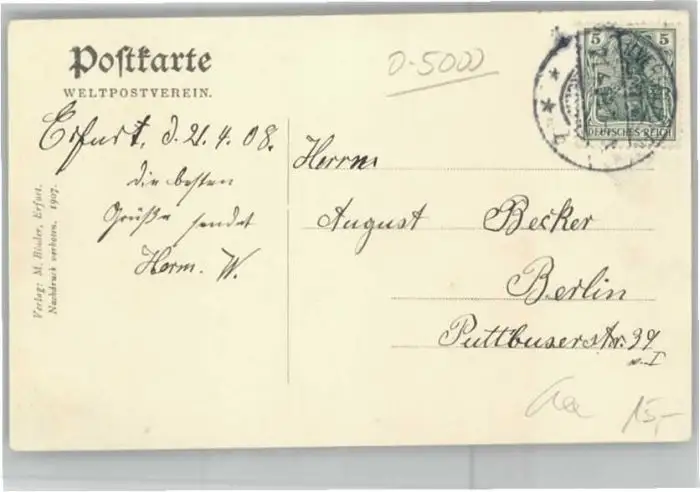 Postkarte
WELTPOSTVEREIN.
0-5000
5 5
DEUTSCHES REICH
Erfurt, d. 21.4.08.
die besten
Grüße sendet
Herm. W.
Herrn
August Becker
Berlin
Puttbuserstr. 39
I
Verlag: M. Binder, Erfurt.
Nachdruck verboten. 1907.
15,-